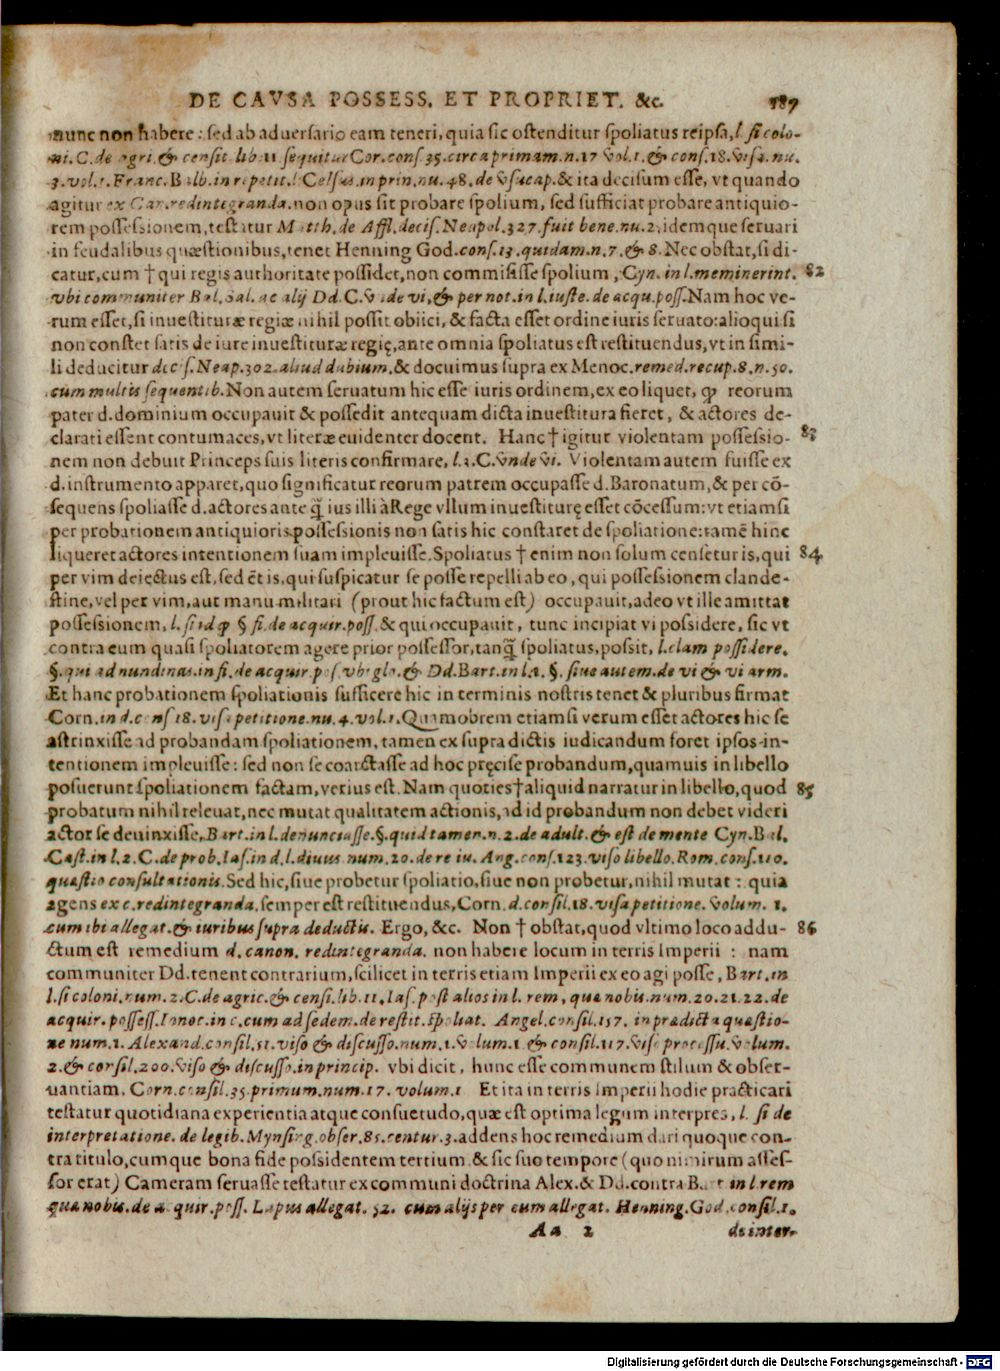 DE CAVSA POSSESS. ET PROPRIET. &c. 187
nunc non habere: sed ab aduersario eam teneri, quia sic ostenditur spoliatus reipsa, l. si colo-
ni. C. de agri. & censit. lib. 11 sequitur Cor. cons. 35. circa primam. n. 17 vol. 1. & cons. 18. visa. nu.
3. vol. 1. Franc. Balb. in repetit. l. Celsus. in prin. nu. 48. de vsucap. & ita decisum esse, vt quando
agitur ex Can. redintegranda. non opus sit probare spolium, sed sufficiat probare antiquio-
rem possessionem, testatur Matth. de Affl. decis. Neapol. 327. fuit bene. nu. 2. idemque seruari
in feudalibus quæstionibus, tenet Henning God. cons. 13. quidam. n. 7. & 8. Nec obstat, si di-
catur, cum † qui regis authoritate possidet, non commisisse spolium, Cyn. in l. meminerint. 82
vbi communiter Bal. Sal. ac alij Dd. C. vnde vi, & per not. in l. iuste. de acqu. poss. Nam hoc ve-
rum esset, si inuestituræ regiæ nihil possit obiici, & facta esset ordine iuris seruato: alioqui si
non constet satis de iure inuestituræ regię, ante omnia spoliatus est restituendus, vt in simi-
li deducitur decis. Neap. 302. aliud dubium. & docuimus supra ex Menoc. remed. recup. 8. n. 50.
cum multis sequentib. Non autem seruatum hic esse iuris ordinem, ex eo liquet, ꝙ reorum
pater d. dominium occupauit & possedit antequam dicta inuestitura fieret, & actores de-
clarati essent contumaces, vt literæ euidenter docent. Hanc † igitur violentam possessio- 83
nem non debuit Princeps suis literis confirmare, l. 3. C. vnde vi. Violentam autem fuisse ex
d. instrumento apparet, quo significatur reorum patrem occupasse d. Baronatum, & per cō-
sequens spoliasse d. actores ante ꝗ̃ ius illi à Rege vllum inuestiturę esset cōcessum: vt etiamsi
per probationem antiquioris possessionis non satis hic constaret de spoliatione: tamē hinc
liqueret actores intentionem suam impleuisse. Spoliatus † enim non solum censetur is, qui 84
per vim deiectus est, sed ēt is, qui suspicatur se posse repelli ab eo, qui possessionem clande-
stine, vel per vim, aut manu militari (prout hic factum est) occupauit, adeo vt ille amittat
possessionem, l. si id ꝙ § fi. de acquir. poss. & qui occupauit, tunc incipiat vi possidere, sic vt
contra eum quasi spoliatorem agere prior possessor, tanꝗ̃ spoliatus, possit, l. clam possidere.
§. qui ad nundinas. in fi. de acquir. pos. vbi glo. & Dd. Bart. in l. 1. §. siue autem. de vi & vi arm.
Et hanc probationem spoliationis sufficere hic in terminis nostris tenet & pluribus firmat
Corn. in d. cons 18. visa petitione. nu. 4. vol. 1. Quamobrem etiamsi verum esset actores hic se
astrinxisse ad probandam spoliationem, tamen ex supra dictis iudicandum foret ipsos in-
tentionem impleuisse: sed non se coarctasse ad hoc pręcise probandum, quamuis in libello
posuerunt spoliationem factam, verius est. Nam quoties † aliquid narratur in libello, quod 85
probatum nihil releuat, nec mutat qualitatem actionis, ad id probandum non debet videri
actor se deuinxisse, Bart. in l. denunciasse. §. quid tamen. n. 2. de adult. & est de mente Cyn. Bal.
Cast. in l. 2. C. de prob. Ias. in d. l. diuus. num. 20. de re iu. Ang. cons. 123. viso libello. Rom. cons. 110.
quæstio consultationis. Sed hic, siue probetur spoliatio, siue non probetur, nihil mutat: quia
agens ex c. redintegranda. semper est restituendus, Corn. d. consil. 18. visa petitione. volum. 1.
cum ibi allegat. & iuribus supra deductis. Ergo, &c. Non † obstat, quod vltimo loco addu- 86
ctum est remedium d. canon. redintegranda. non habere locum in terris Imperii: nam
communiter Dd. tenent contrarium, scilicet in terris etiam Imperii ex eo agi posse, Bart. in
l. si coloni. num. 2. C. de agric. & censi. lib. 11. Ias. post alios in l. rem, quæ nobis. num. 20. 21. 22. de
acquir. possess. Innoc. in c. cum ad sedem. de restit. spoliat. Angel. consil. 157. in prædicta quæstio-
ne num. 1. Alexand. consil. 51. viso & discusso. num. 1. volum. 1 & consil. 117. viso processu. volum.
2. & consil. 200. viso & discusso. in princip. vbi dicit, hunc esse communem stilum & obser-
uantiam. Corn. consil. 35. primum. num. 17. volum. 1 Et ita in terris Imperii hodie practicari
testatur quotidiana experientia atque consuetudo, quæ est optima legum interpres, l. si de
interpretatione. de legib. Mynsing. obser. 85. centur. 3. addens hoc remedium dari quoque con-
tra titulo, cumque bona fide possidentem tertium & sic suo tempore (quo nimirum asses-
sor erat) Cameram seruasse testatur ex communi doctrina Alex. & Dd. contra Bart in l. rem
quæ nobis. de acquir. poss. Lapus allegat. 52. cum alijs per eum allegat. Henning. God. consil. 1.
Aa 2 de inter-
Digitalisierung gefördert durch die Deutsche Forschungsgemeinschaft - DFG